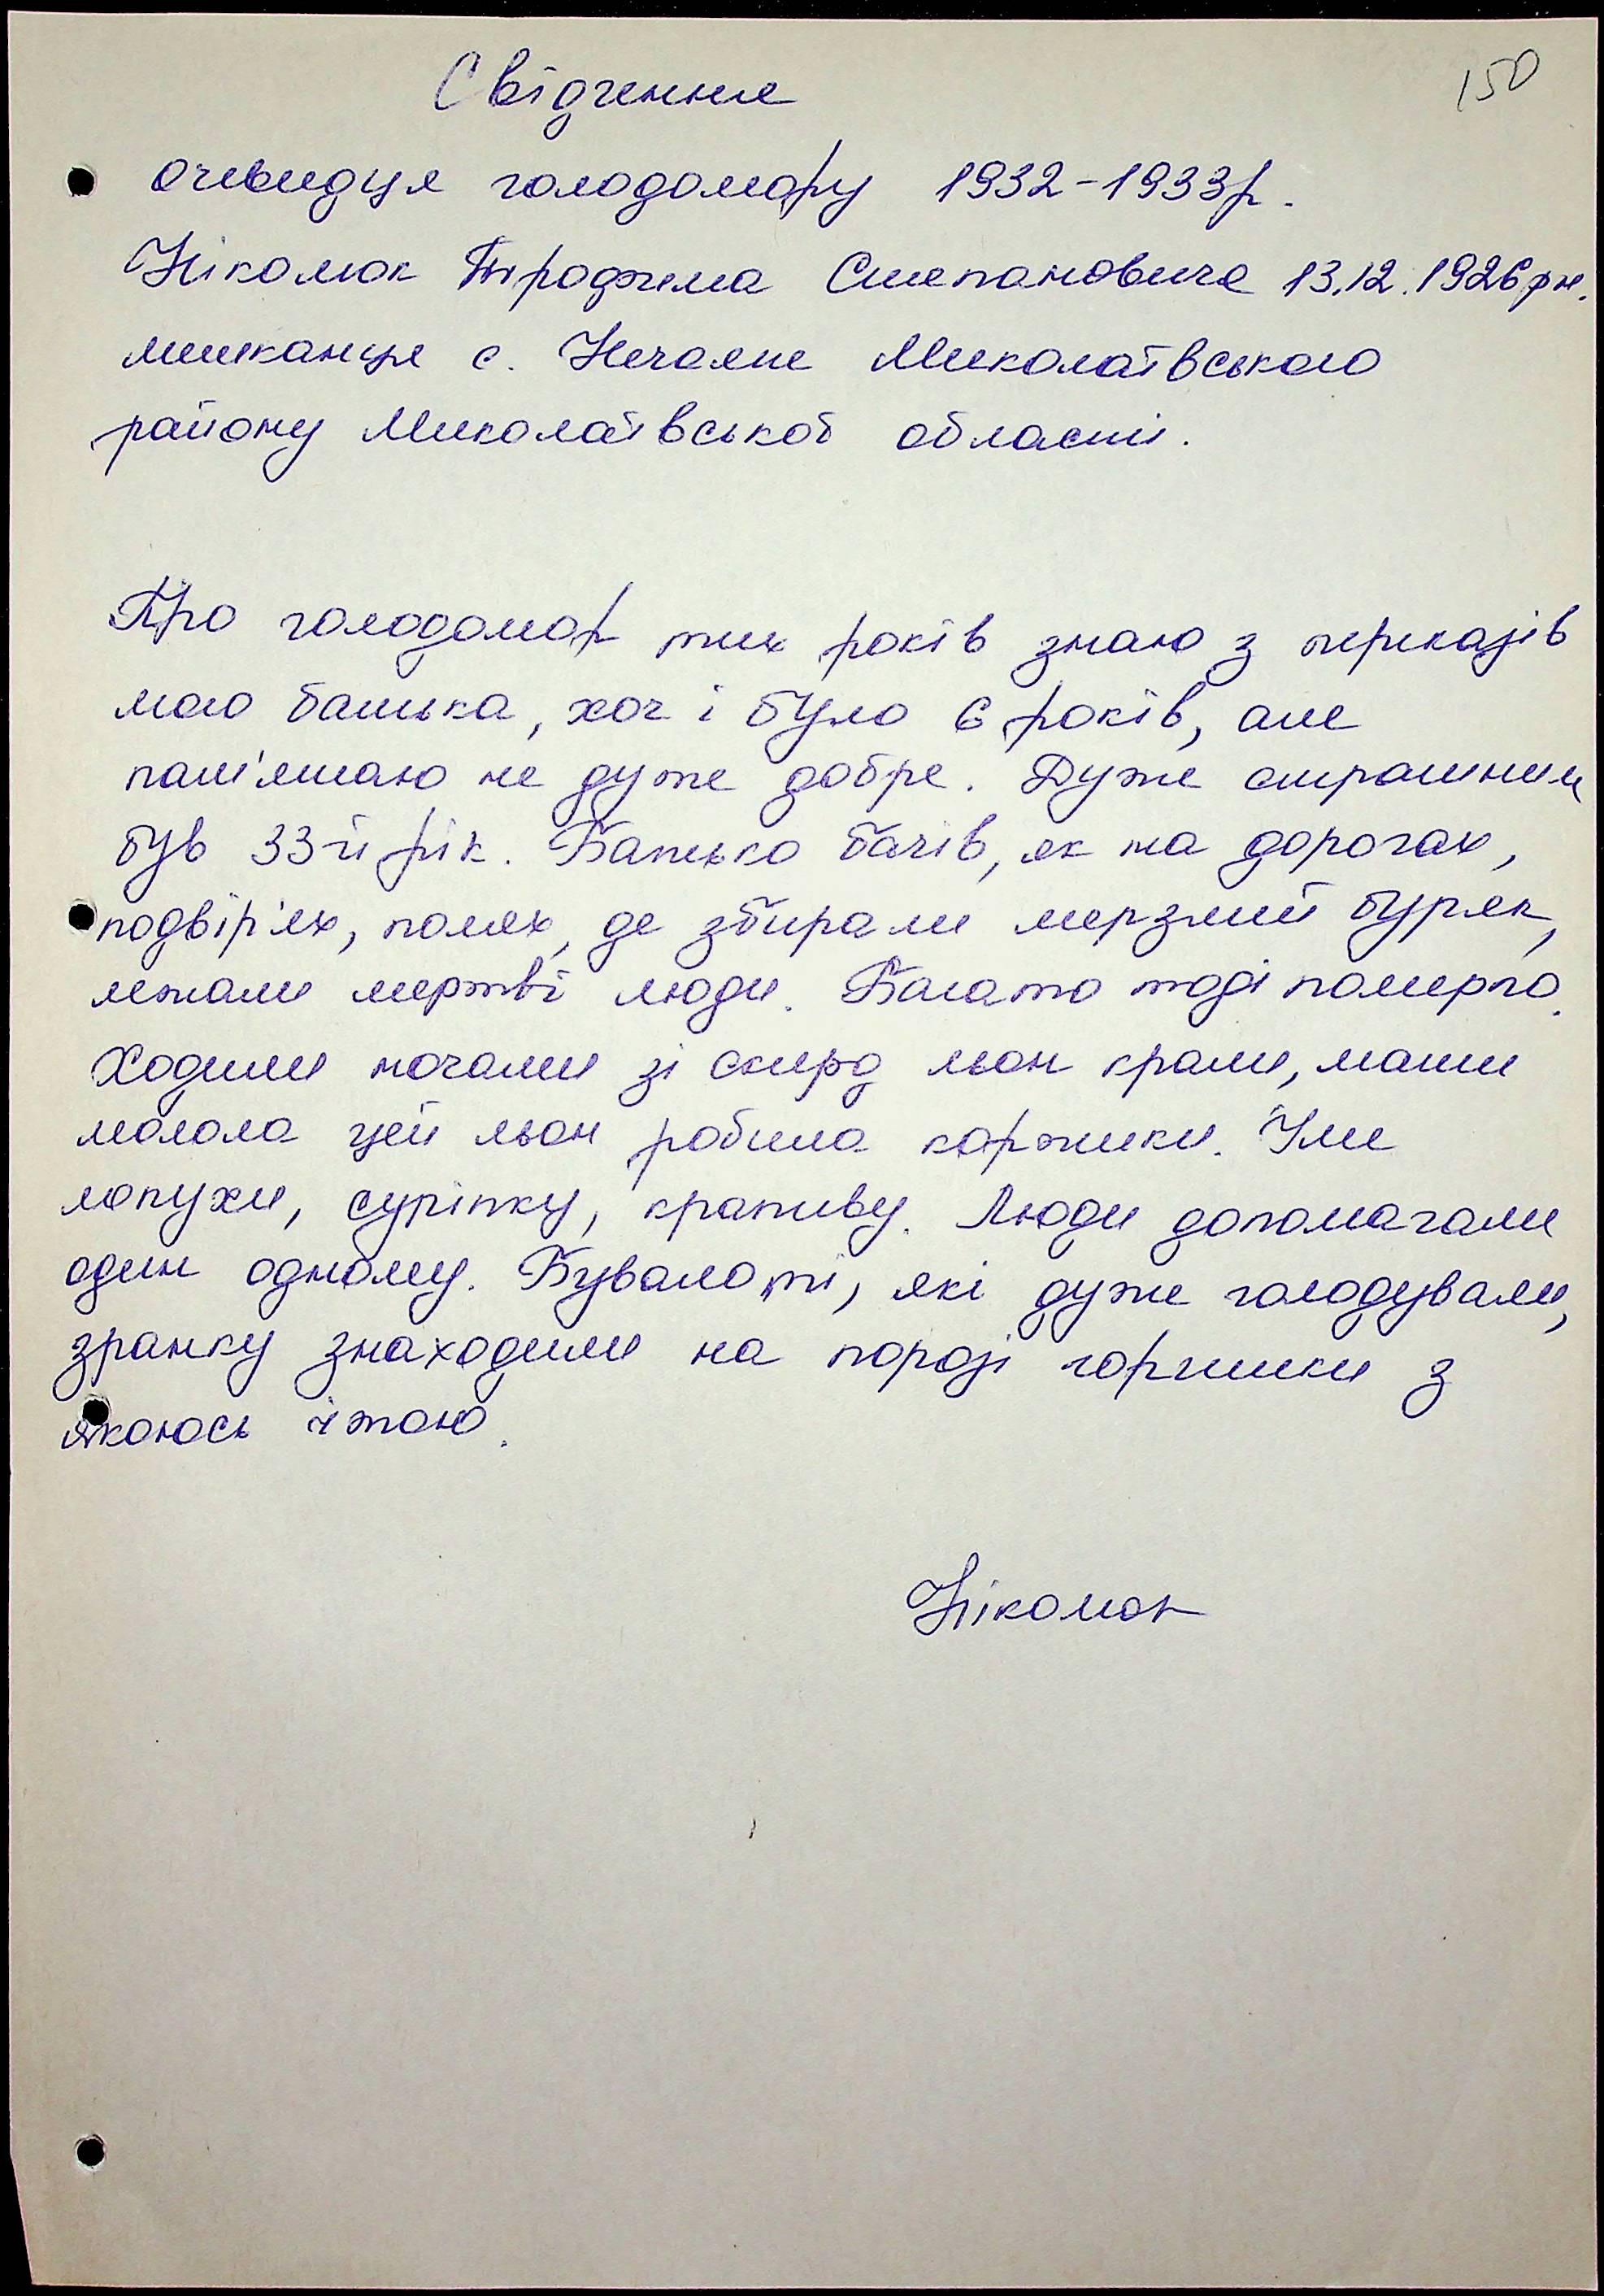 150
Свідчення
очевидця голодомору 1932-1933р.
Ніколюк Трофима Степановича 13.12.1926рн.
мешканця с. Нечаяне Миколаївського
району Миколаївської області.
Про голодомор тих років знаю з переказів
мого батька, хоч і було 6 років, але
пам'ятаю не дуже добре. Дуже страшним
був 33-й рік. Батько бачів, як на дорогах,
подвір'ях, полях, де збирали мерзлий буряк,
лежали мертві люди. Багато тоді померло.
Ходили ночами зі скирд льон крали, мати
молола цей льон робила коржики. Їли
лопухи, суріпку, крапиву. Люди допомагали
один одному. Бувало ті, які дуже голодували,
зранку знаходили на порозі горщики з
якоюсь їжою.
Ніколюк